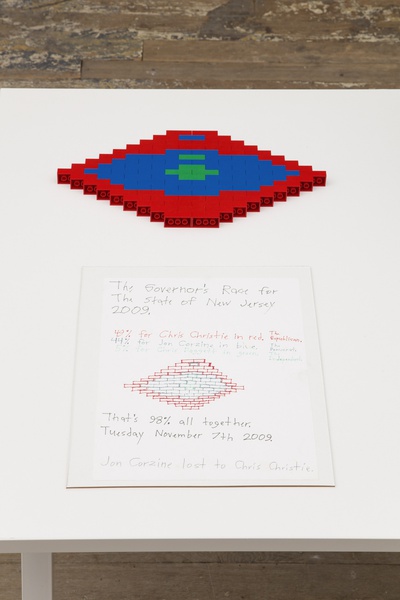 The Governor's Race for
The State of New Jersey
2009.
% for Chris Christie in red. The Republican,
44% for Jon Corzine in blue. The Democrats
5% for Chris Daggett in green.
That's 98% all together.
Tuesday November 7th 2009.
Jon Corzine lost to Chris Christie.